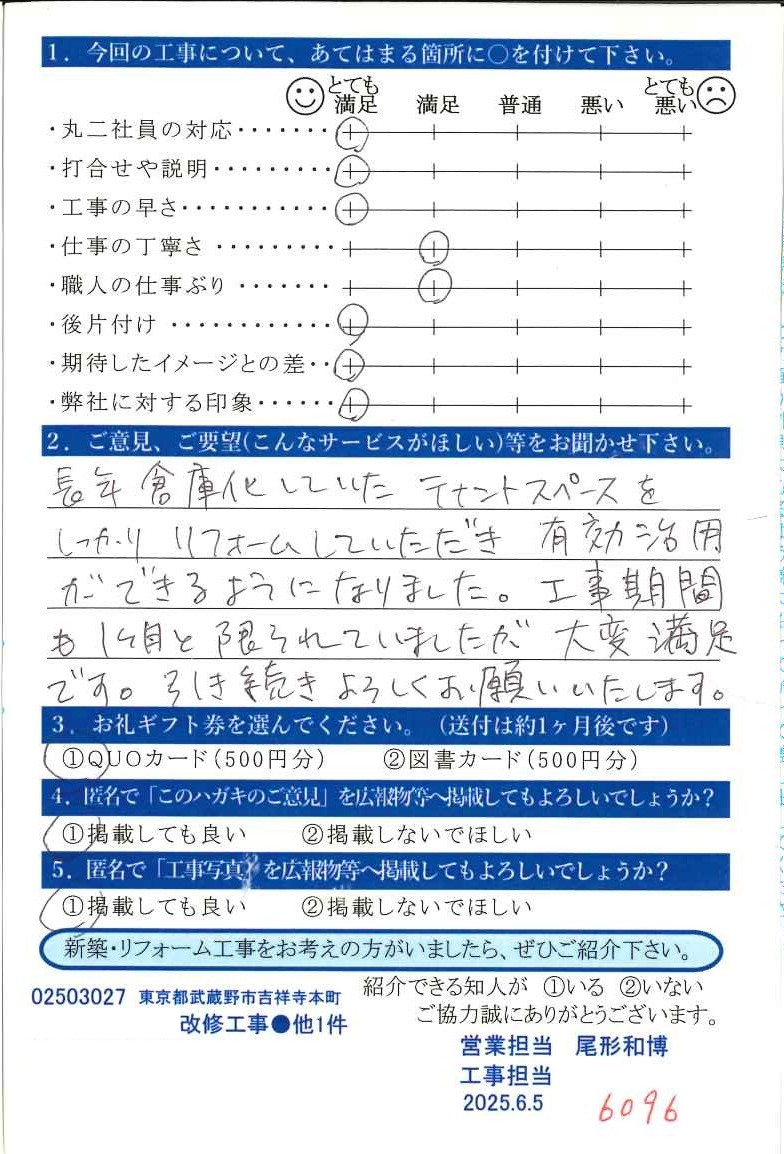 1．今回の工事について、あてはまる箇所に○を付けて下さい。
とても満足 満足 普通 悪い とても悪い
・丸二社員の対応・・・・・・・
・打合せや説明・・・・・・・・・
・工事の早さ・・・・・・・・・・・
・仕事の丁寧さ・・・・・・・・・
・職人の仕事ぶり・・・・・・・
・後片付け・・・・・・・・・・・・
・期待したイメージとの差・・
・弊社に対する印象・・・・・・
2．ご意見、ご要望(こんなサービスがほしい)等をお聞かせ下さい。
長年倉庫化していた テナントスペースを
しっかり リフォームしていただき 有効活用
ができるようになりました。工事期間
も1ヶ月と限られていましたが 大変満足
です。引き続きよろしくお願いいたします。
3．お礼ギフト券を選んでください。（送付は約1ヶ月後です）
①QUOカード(500円分) ②図書カード(500円分)
4．匿名で「このハガキのご意見」を広報物等へ掲載してもよろしいでしょうか？
①掲載しても良い ②掲載しないでほしい
5．匿名で「工事写真」を広報物等へ掲載してもよろしいでしょうか？
①掲載しても良い ②掲載しないでほしい
新築・リフォーム工事をお考えの方がいましたら、ぜひご紹介下さい。
紹介できる知人が ①いる ②いない
02503027 東京都武蔵野市吉祥寺本町
ご協力誠にありがとうございます。
改修工事●他1件
営業担当 尾形和博
工事担当
2025.6.5
6096